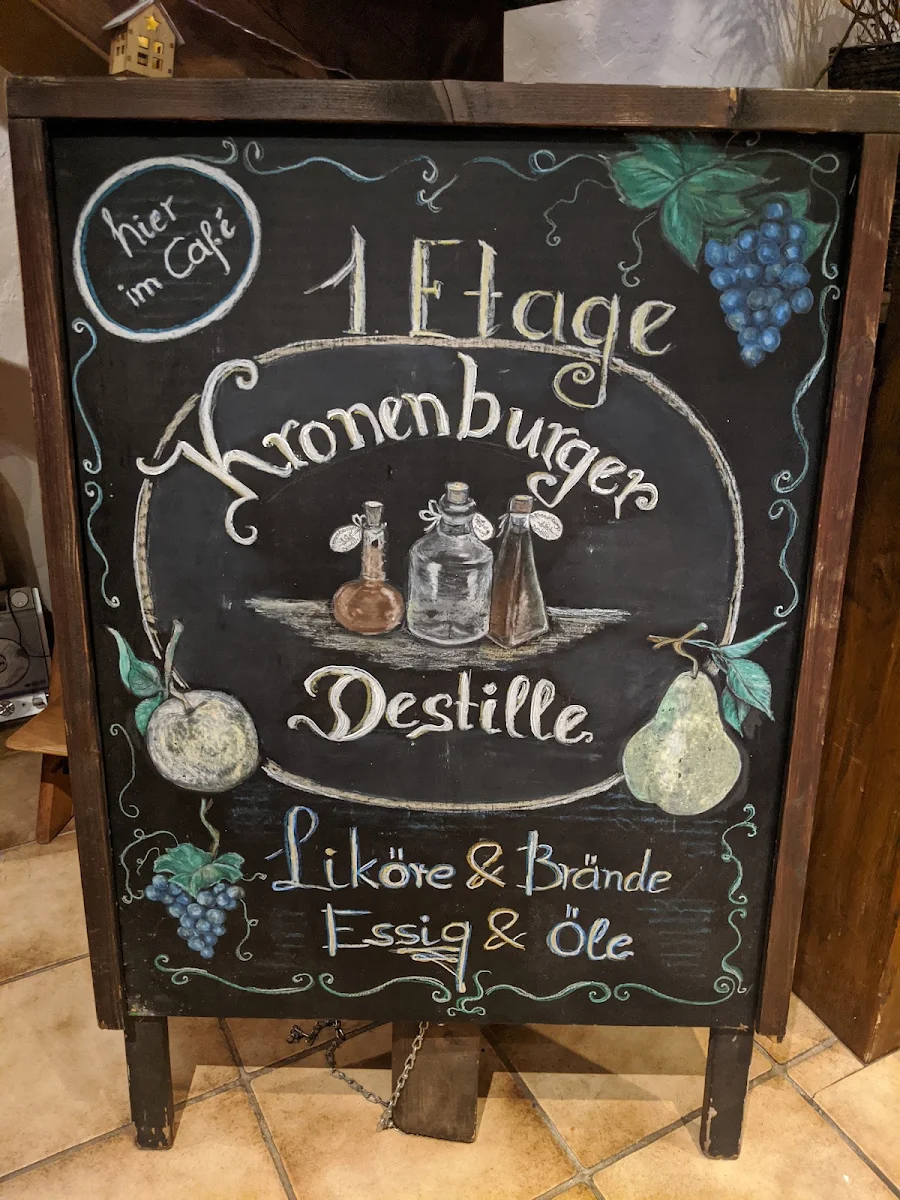 hier
im Café
1 Etage
Kronenburger
Destille
Liköre & Brände
Essig & Öle